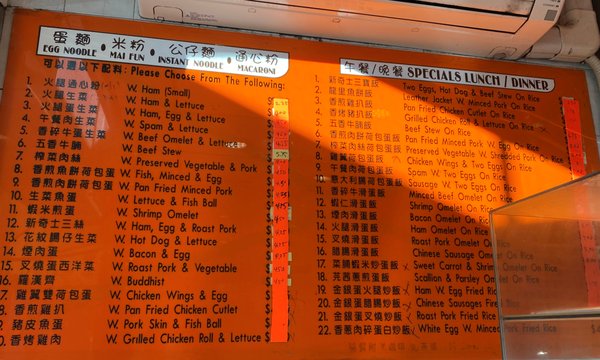 蛋麵 · 米粉 · 公仔麵 · 通心粉
EGG NOODLE · MAI FUN · INSTANT NOODLE · MACARONI
可以選以下配料: Please Choose From The Following:
1. 火腿通心粉 W. Ham (Small)
2. 火腿生菜 W. Ham & Lettuce
3. 火腿蛋生菜 W. Ham, Egg & Lettuce
4. 午餐肉生菜 W. Spam & Lettuce
5. 香碎牛蛋生菜 W. Beef Omelet & Lettuce
6. 五香牛腩 W. Beef Stew
7. 榨菜肉絲 W. Preserved Vegetable & Pork
8. 香煎魚餅荷包蛋 W. Fish, Minced & Egg
9. 香煎肉餅荷包蛋 W. Pan Fried Minced Pork
10. 生菜魚蛋 W. Lettuce & Fish Ball
11. 蝦米煎蛋 W. Shrimp Omelet
12. 新奇士三絲 W. Ham, Egg & Roast Pork
13. 花紋腸仔生菜 W. Hot Dog & Lettuce
14. 煙肉蛋 W. Bacon & Egg
15. 叉燒西洋菜 W. Roast Pork & Vegetable
16. 羅漢齋 W. Buddhist
17. 雞翼雙荷包蛋 W. Chicken Wings & Egg
18. 香煎雞扒 W. Pan Fried Chicken Cutlet
19. 豬皮魚蛋 W. Pork Skin & Fish Ball
20. 香烤雞肉 W. Grilled Chicken Roll & Lettuce
午餐/晚餐 SPECIALS LUNCH / DINNER
1. 新奇士三寶飯 Two Eggs, Hot Dog & Beef Stew On Rice
2. Leather Jacket W. Minced Pork On Rice
3. 香煎雞扒飯 Pan Fried Chicken Cutlet On Rice
4. Grilled Chicken Roll & Lettuce On Rice
5. 五香牛腩飯 Beef Stew On Rice
6. Pan Fried Minced Pork W. Two Eggs On Rice
7. 榨菜肉絲煎蛋飯 Preserved Vegetable W. Shredded Pork On Rice
8. 雞翼荷包蛋飯 Chicken Wings & Two Eggs On Rice
9. 午餐肉荷包蛋飯 Spam W. Two Eggs On Rice
10. 意大利腸荷包蛋飯 Sausage W. Two Eggs On Rice
11. 香碎牛滑蛋飯 Minced Beef Omelet On Rice
12. 蝦仁滑蛋飯 Shrimp Omelet On Rice
13. 煙肉滑蛋飯 Bacon Omelet On Rice
14. 火腿滑蛋飯 Ham Omelet On Rice
15. 叉燒滑蛋飯 Roast Pork Omelet On Rice
16. 臘腸滑蛋飯 Chinese Sausage Omelet On Rice
17. 菜脯蝦米炒蛋飯 Sweet Carrot & Shrimp Omelet On Rice
18. 芫茜蔥煎蛋飯 Scallion & Parsley Omelet On Rice
19. 金銀蛋火腿炒飯 Ham W. Egg Fried Rice
20. 金銀蛋臘腸炒飯 Chinese Sausages Fried Rice
21. 金銀蛋叉燒炒飯 Roast Pork Fried Rice
22. 香蔥肉碎蛋白炒飯 White Egg W. Minced Pork Fried Rice